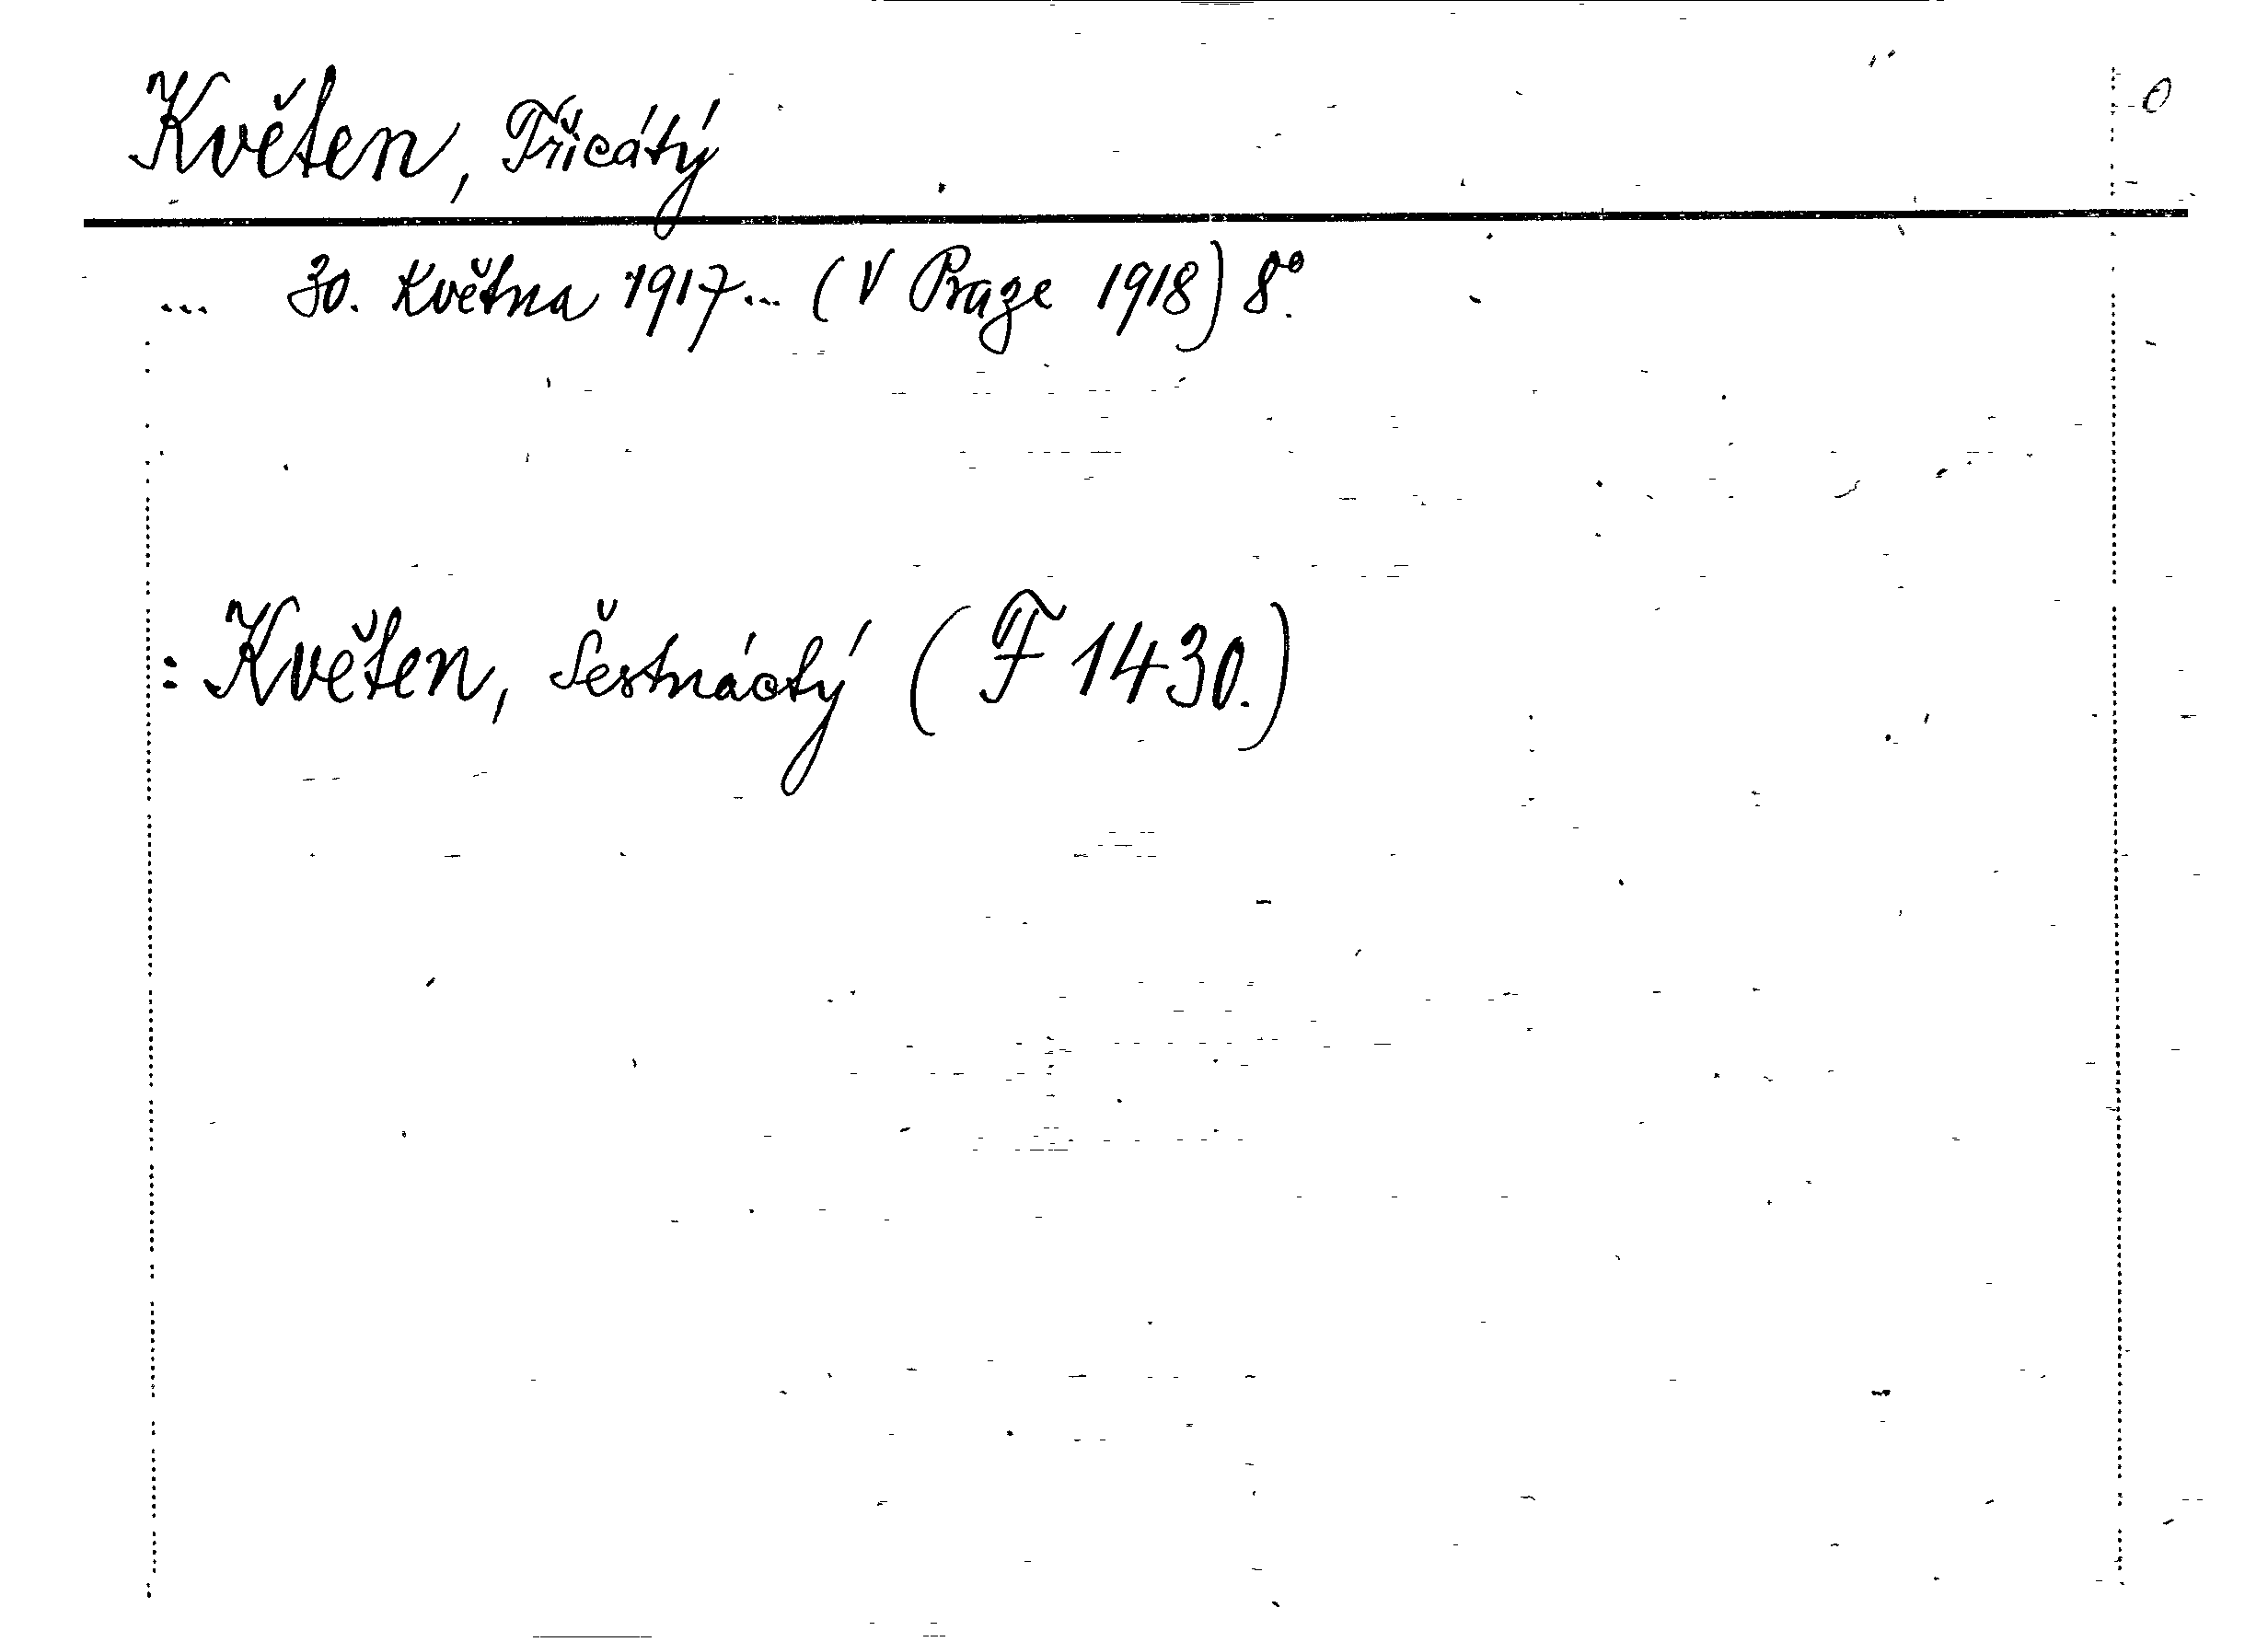 Květen, Třicátý
0
... 30. Května 1917... (V Praze 1918) 8°.
: Květen, Šestnáctý (F 1430.)